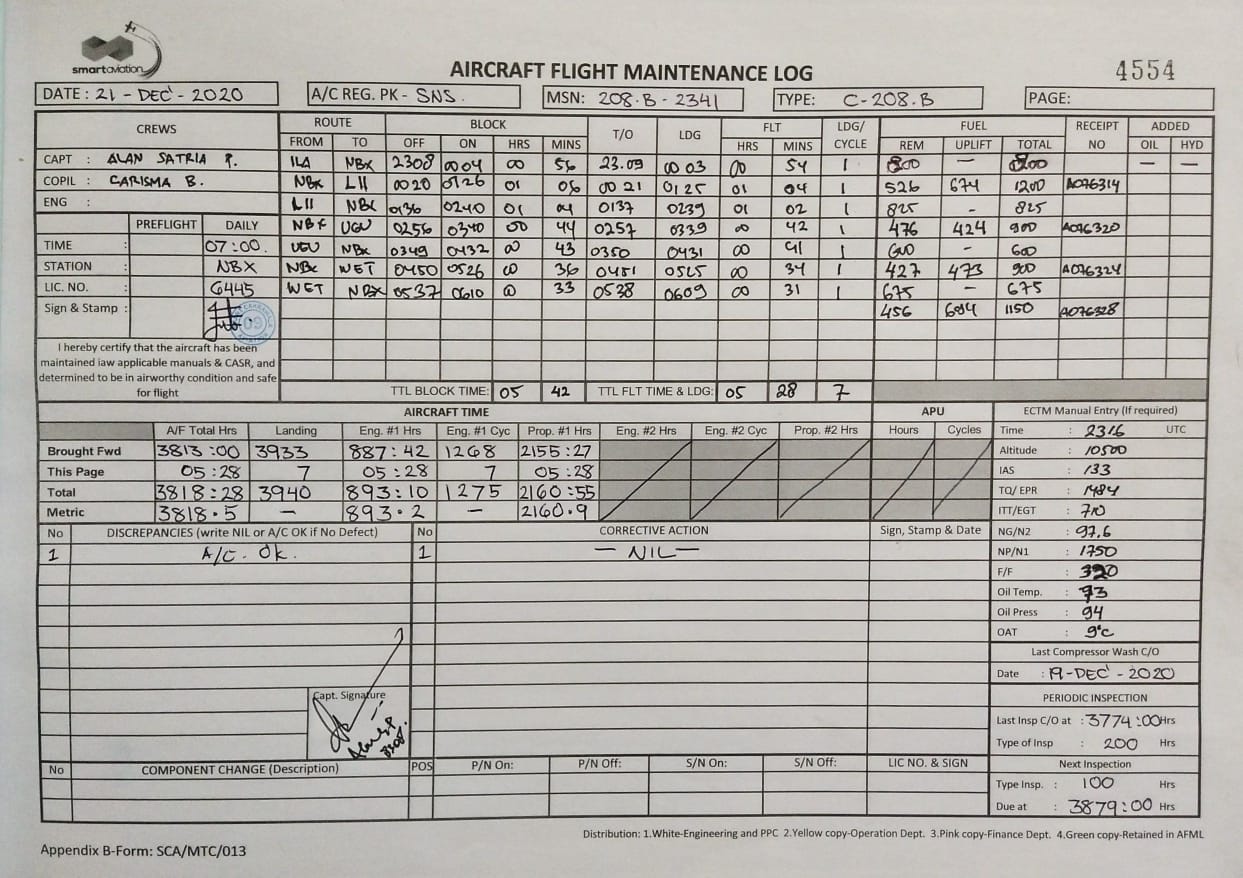 smartaviation
AIRCRAFT FLIGHT MAINTENANCE LOG
4554
DATE : 21 - DEC - 2020 A/C REG. PK - SNS. MSN: 208.B - 2341 TYPE: C-208.B PAGE:
CREWS ROUTE BLOCK T/O LDG FLT LDG/ CYCLE FUEL RECEIPT NO ADDED
FROM TO OFF ON HRS MINS HRS MINS REM UPLIFT TOTAL OIL HYD
CAPT : ALAN SATRIA P. ILA NBX 2308 0004 00 56 23.09 00 03 00 54 1 800 — 800 — —
COPIL : CARISMA B. NBX LII 0020 0126 01 06 00 21 0125 01 04 1 526 674 1200 A076314
ENG : LII NBX 0136 0240 01 04 0137 0239 01 02 1 825 - 825
PREFLIGHT DAILY NBX UGU 0256 0340 00 44 0257 0339 00 42 1 476 424 900 A076320
TIME : 07:00. UGU NBX 0349 0432 00 43 0350 0431 00 41 1 600 - 600
STATION : NBX NBX WET 0450 0526 00 36 0451 0525 00 34 1 427 473 900 A076324
LIC. NO. : 6445 WET NBX 0537 0610 00 33 0538 0609 00 31 1 675 - 675
Sign & Stamp : 09 456 694 1150 A076328
I hereby certify that the aircraft has been
maintained iaw applicable manuals & CASR, and
determined to be in airworthy condition and safe
for flight
TTL BLOCK TIME: 05 42 TTL FLT TIME & LDG: 05 28 7
AIRCRAFT TIME APU ECTM Manual Entry (If required)
A/F Total Hrs Landing Eng. #1 Hrs Eng. #1 Cyc Prop. #1 Hrs Eng. #2 Hrs Eng. #2 Cyc Prop. #2 Hrs Hours Cycles Time : 2316 UTC
Brought Fwd 3813:00 3933 887:42 1268 2155:27 Altitude : 10500
This Page 05:28 7 05:28 7 05:28 IAS : 133
Total 3818:28 3940 893:10 1275 2160:55 TQ/ EPR : 1484
Metric 3818.5 — 893.2 — 2160.9 ITT/EGT : 710
No DISCREPANCIES (write NIL or A/C OK if No Defect) No CORRECTIVE ACTION Sign, Stamp & Date NG/N2 : 97.6
1 A/C. OK. 1 — NIL — NP/N1 : 1750
F/F : 320
Oil Temp. : 73
Oil Press : 94
OAT : 9°c
Last Compressor Wash C/O
Date : 19-DEC - 2020
Capt. Signature
PERIODIC INSPECTION
Last Insp C/O at : 3774:00 Hrs
Type of Insp : 200 Hrs
No COMPONENT CHANGE (Description) POS P/N On: P/N Off: S/N On: S/N Off: LIC NO. & SIGN Next Inspection
Type Insp. : 100 Hrs
Due at : 3879:00 Hrs
Distribution: 1.White-Engineering and PPC 2.Yellow copy-Operation Dept. 3.Pink copy-Finance Dept. 4.Green copy-Retained in AFML
Appendix B-Form: SCA/MTC/013